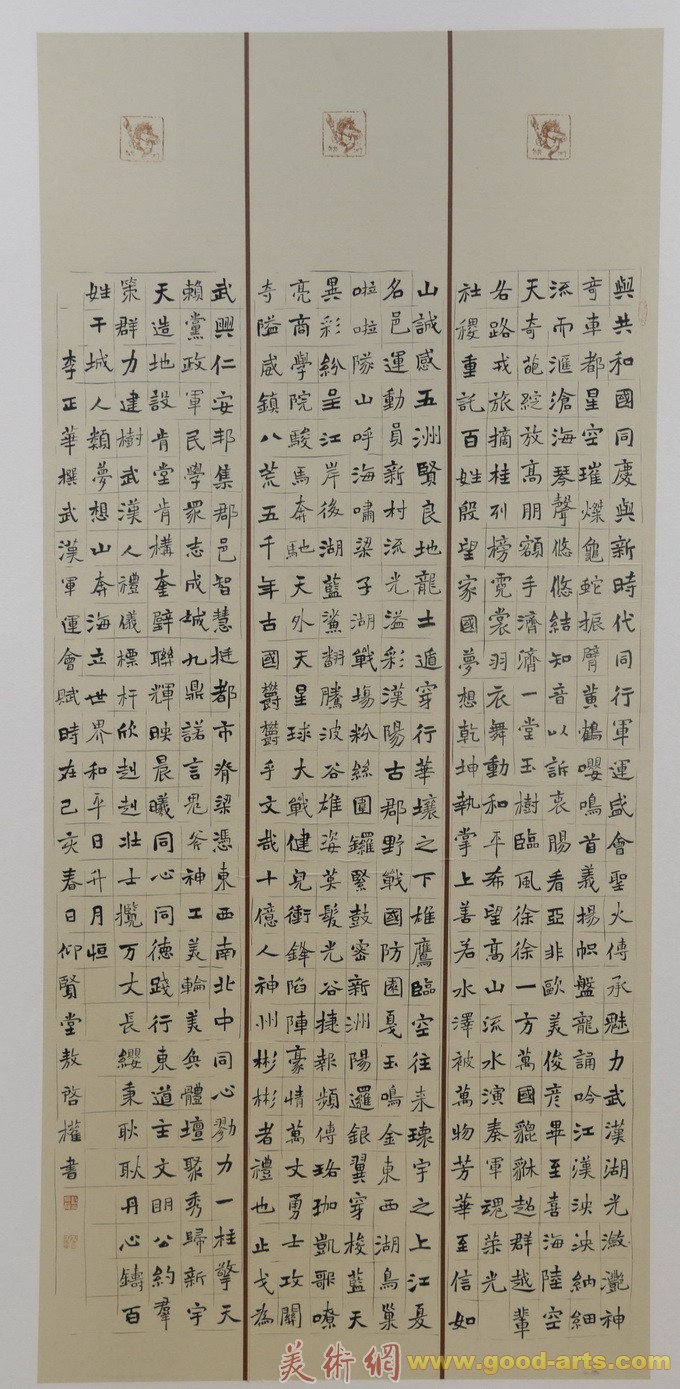 與共和國同慶與新時代同行軍運盛會聖火傳承魅力武漢湖光瀲灩神
奇車都星空璀燦龜蛇振臂黃鶴嚶鳴首義揚幟盤龍誦吟江漢泱泱納細
流而滙滄海琴聲悠悠結知音以訴衷腸看亞非歐美俊彥畢至喜海陸空
天奇葩綻放高朋額手濟濟一堂玉樹臨風徐徐一方萬國貔貅超群越輩
各路戎旅摘桂列榜霓裳羽衣舞動和平希望高山流水演奏軍魂榮光
社稷重託百姓殷望家國夢想乾坤執掌上善若水澤被萬物芳華至信如
山誠感五洲賢良地龍土遁穿行華壤之下雄鷹臨空往来瓌宇之上江夏
名邑運動員新村流光溢彩漢陽古郡野戰國防園戛玉鳴金東西湖鳥巢
啦啦隊山呼海嘯梁子湖戰場粉絲團鑼緊鼓密新洲陽邏銀翼穿梭藍天
異彩紛呈江岸後湖藍鯊翻騰波谷雄姿英髮光谷捷報頻傳珞珈凱歌嘹
亮商學院駿馬奔馳天外天星球大戰健兒衝鋒陷陣豪情萬丈勇士攻關
奇隘威鎮八荒五千年古國欝欝乎文哉十億人神州彬彬者禮也止戈為
武興仁安邦集郡邑智慧挺都市脊梁憑東西南北中同心勠力一柱擎天
賴黨政軍民學眾志成城九鼎諾言鬼斧神工美輪美奐體壇聚秀歸新宇
天造地設肯堂肯構奎壁聯輝映晨曦同心同德踐行東道主文明公約羣
策群力建樹武漢人禮儀標杆欣赳赳壯士攬万丈長纓秉耿耿丹心鑄百
姓干城人類夢想山奔海立世界和平日升月恒
李正華撰武漢軍運會賦時在己亥春日仰賢堂敖啓權書
美術網 www.good-arts.com